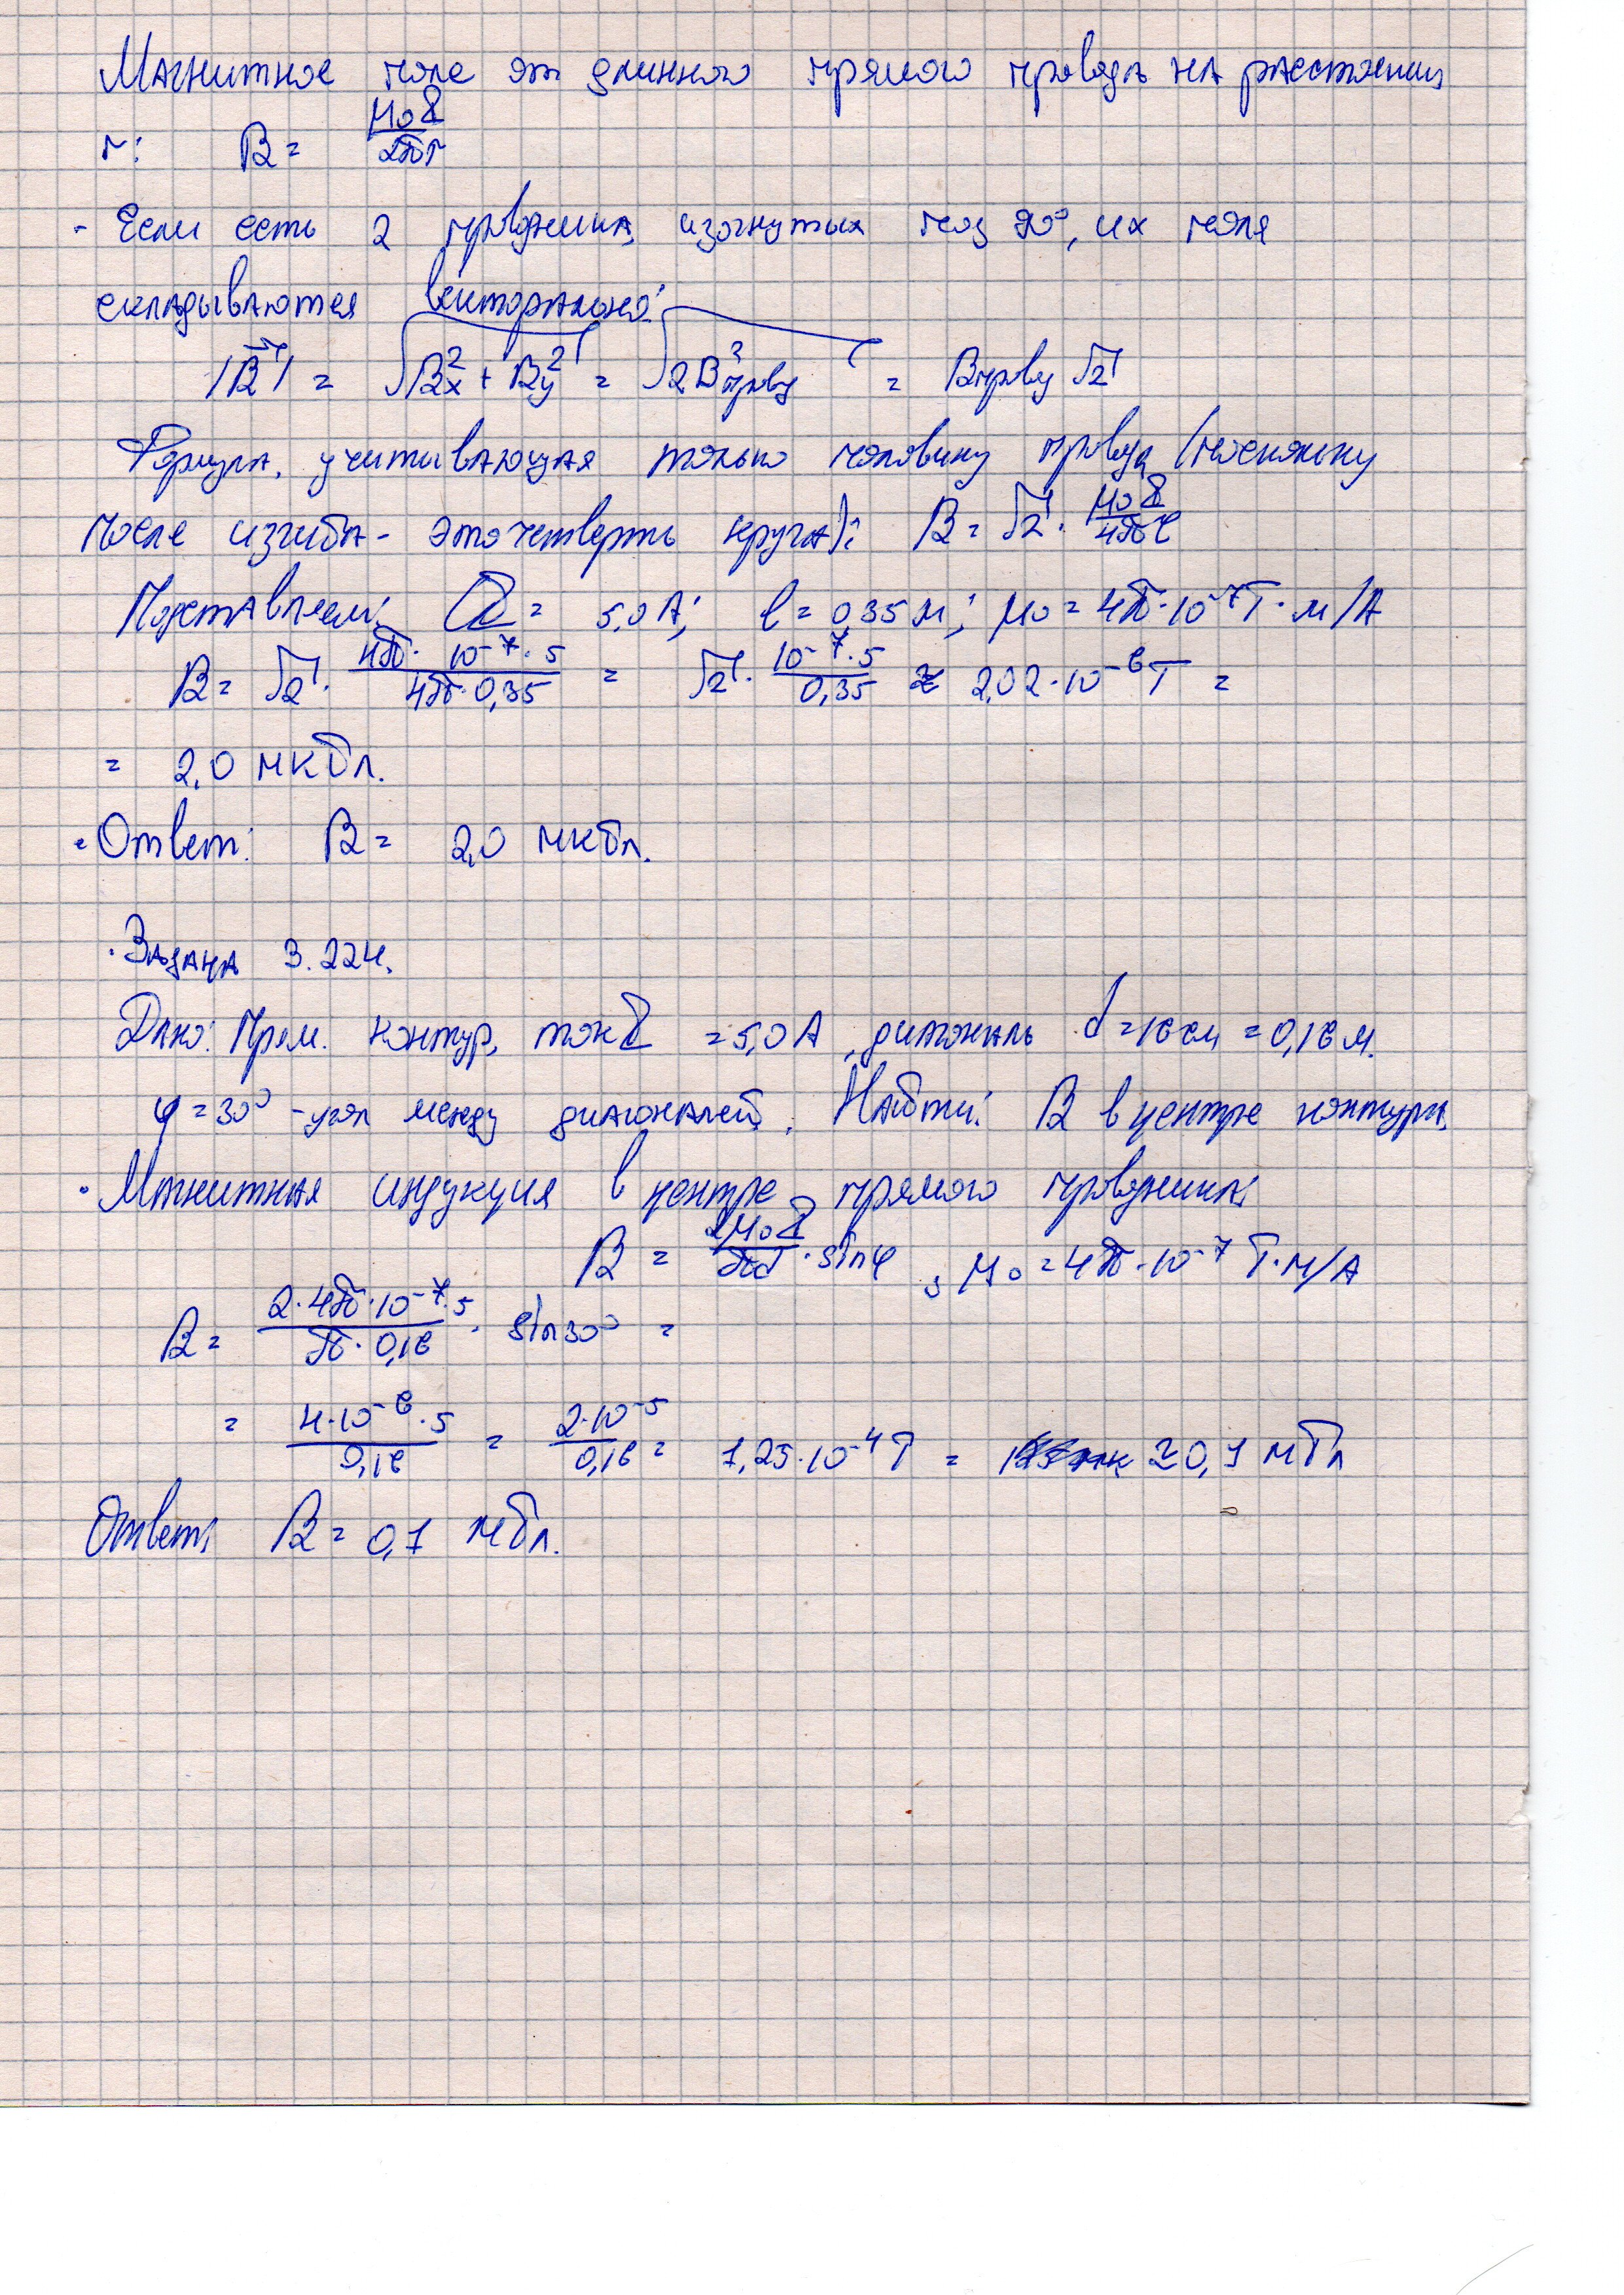 Магнитное поле от длинного прямого провода на расстоянии
r: B = μ₀I / 2πr
- Если есть 2 проводника, изогнутых под 90°, их поля
складываются векторально:
|B⃗| = √(Bx² + By²) = √(2B²провд) = Bпровд √2
Формула, учитывающая только половину провода (поскольку
после изгиба - это четверть круга): B = √2 · μ₀I / 4πl
Подставляем: I = 5,0 А; l = 0,35 м; μ₀ = 4π·10⁻⁷ Т·м/А
B = √2 · 4π · 10⁻⁷ · 5 / 4π · 0,35 = √2 · 10⁻⁷ · 5 / 0,35 ≈ 2,02 · 10⁻⁶ Т =
= 2,0 мкТл.
Ответ: B = 2,0 мкТл.
· Задача 3.224.
Дано: Прям. контур, ток I = 5,0 А, диагональ d = 16 см = 0,16 м.
φ = 30° - угол между диагоналей. Найти: B в центре контура.
· Магнитная индукция в центре прямого проводника:
B = 2μ₀I / πd · sinφ, μ₀ = 4π·10⁻⁷ Т·м/А
B = 2·4π·10⁻⁷·5 / π·0,16 · sin30° =
= 4·10⁻⁶·5 / 0,16 = 2·10⁻⁵ / 0,16 = 1,25·10⁻⁴ Т = ≈ 0,1 мТл
Ответ: B = 0,1 мТл.